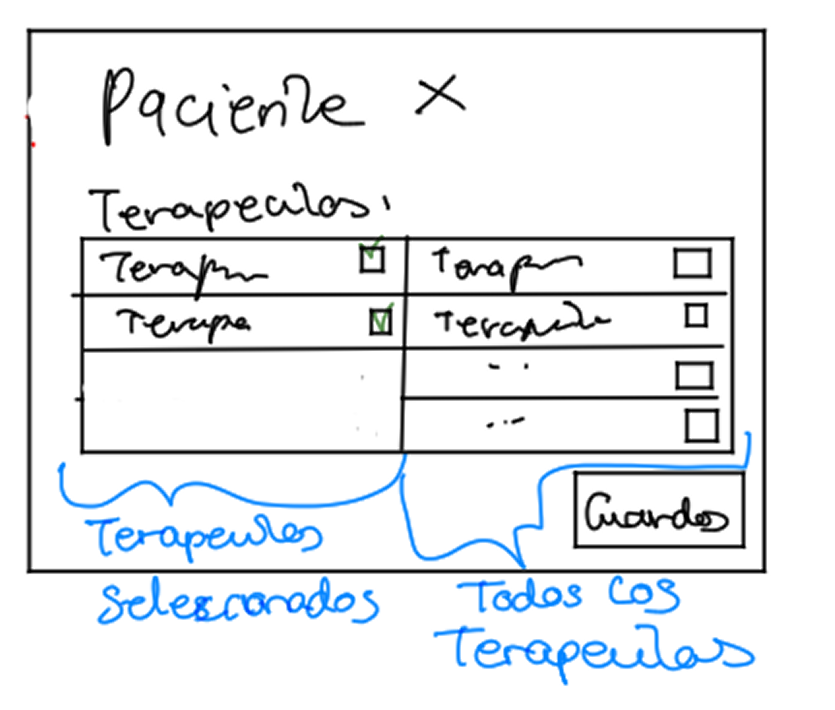 Paciente X
Terapeutas:
Terapeu Terapeu
Terapeu Terapeuta
...
...
Guardar
Terapeutas
Seleccionados
Todos los
Terapeutas